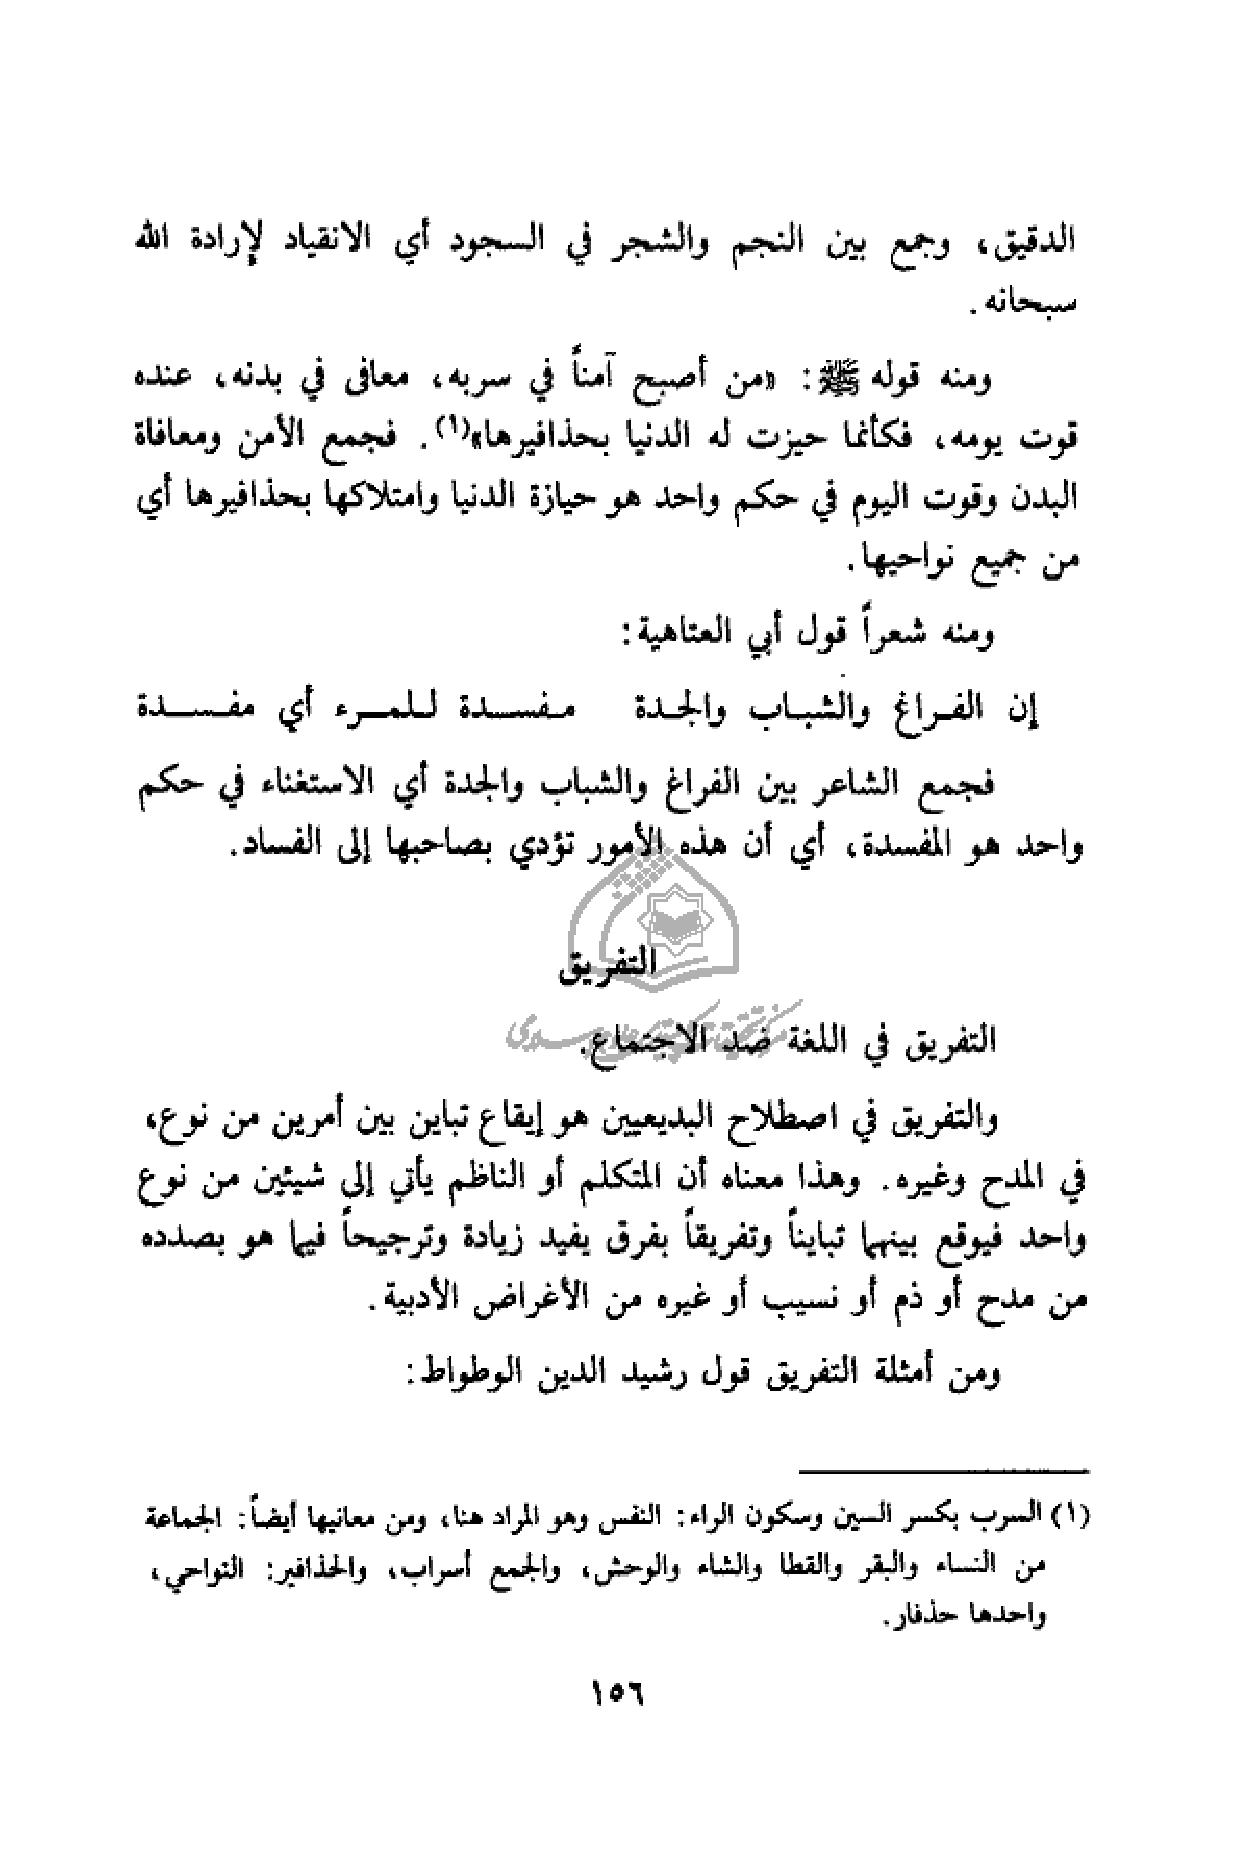 الدقيق، وجمع بين النجم والشجر في السجود أي الانقياد لإرادة الله
سبحانه.
ومنه قوله ﷺ: «من أصبح آمناً في سربه، معافى في بدنه، عنده
قوت يومه، فكأنما حيزت له الدنيا بحذافيرها»(١). فجمع الأمن ومعافاة
البدن وقوت اليوم في حكم واحد هو حيازة الدنيا وامتلاكها بحذافيرها أي
من جميع نواحيها.
ومنه شعراً قول أبي العتاهية:
إن الفـراغ والشبـاب والجـدة مـفسـدة لـلمـرء أي مفـسـدة
فجمع الشاعر بين الفراغ والشباب والجدة أي الاستغناء في حكم
واحد هو المفسدة، أي أن هذه الأمور تؤدي بصاحبها إلى الفساد.
التفريق
التفريق في اللغة ضد الاجتماع.
والتفريق في اصطلاح البديعيين هو إيقاع تباين بين أمرين من نوع،
في المدح وغيره. وهذا معناه أن المتكلم أو الناظم يأتي إلى شيئين من نوع
واحد فيوقع بينهما تبايناً وتفريقاً بفرق يفيد زيادة وترجيحاً فيما هو بصدده
من مدح أو ذم أو نسيب أو غيره من الأغراض الأدبية.
ومن أمثلة التفريق قول رشيد الدين الوطواط:
(١) السرب بكسر السين وسكون الراء: النفس وهو المراد هنا، ومن معانيها أيضاً: الجماعة
من النساء والبقر والقطا والشاء والوحش، والجمع أسراب، والحذافير: النواحي،
واحدها حذفار.
١٥٦